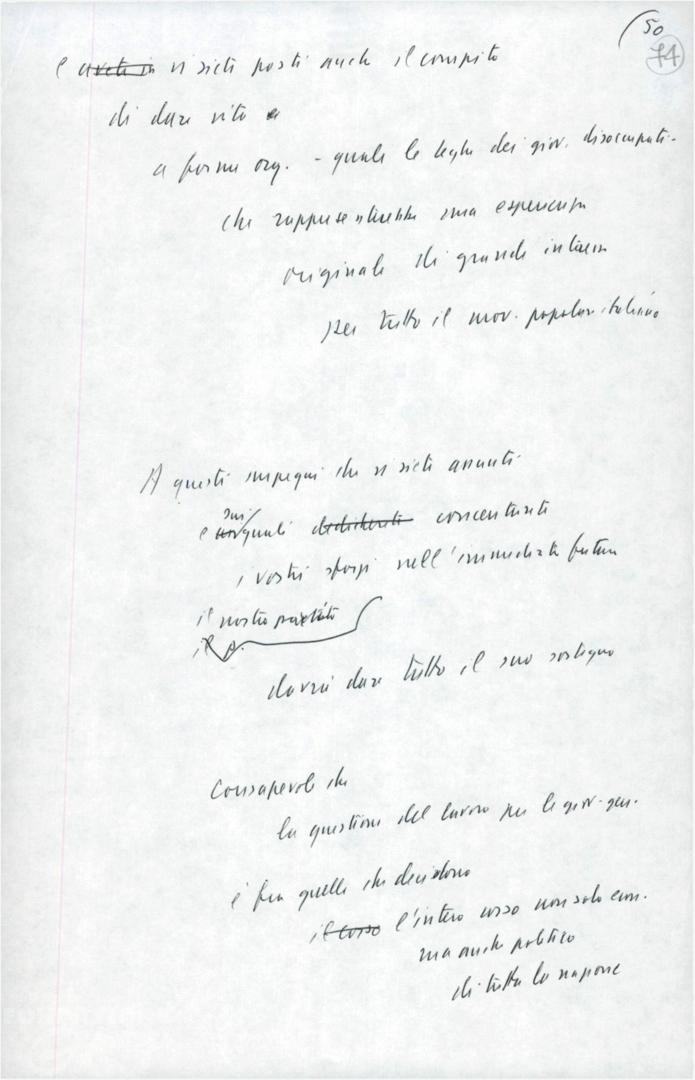 50
74
e aveti in vi siete posti anche il compito
di dare vita a
a forme org. - quali le leghe dei giov. disoccupati -
che rappresenterebbe una esperienza
originale di grande interesse
per tutto il mov. popolare italiano
A questi impegni che vi siete assunti
sui
e quali concentrate
i vostri sforzi nell'immediato futuro
il nostro partito
il p.
dovrà dare tutto il suo sostegno
Consapevole che
la questione del lavoro per le giov. gen.
è fra quelle che decidono
il corso l'intero corso non solo econ.
ma anche politico
di tutta la nazione